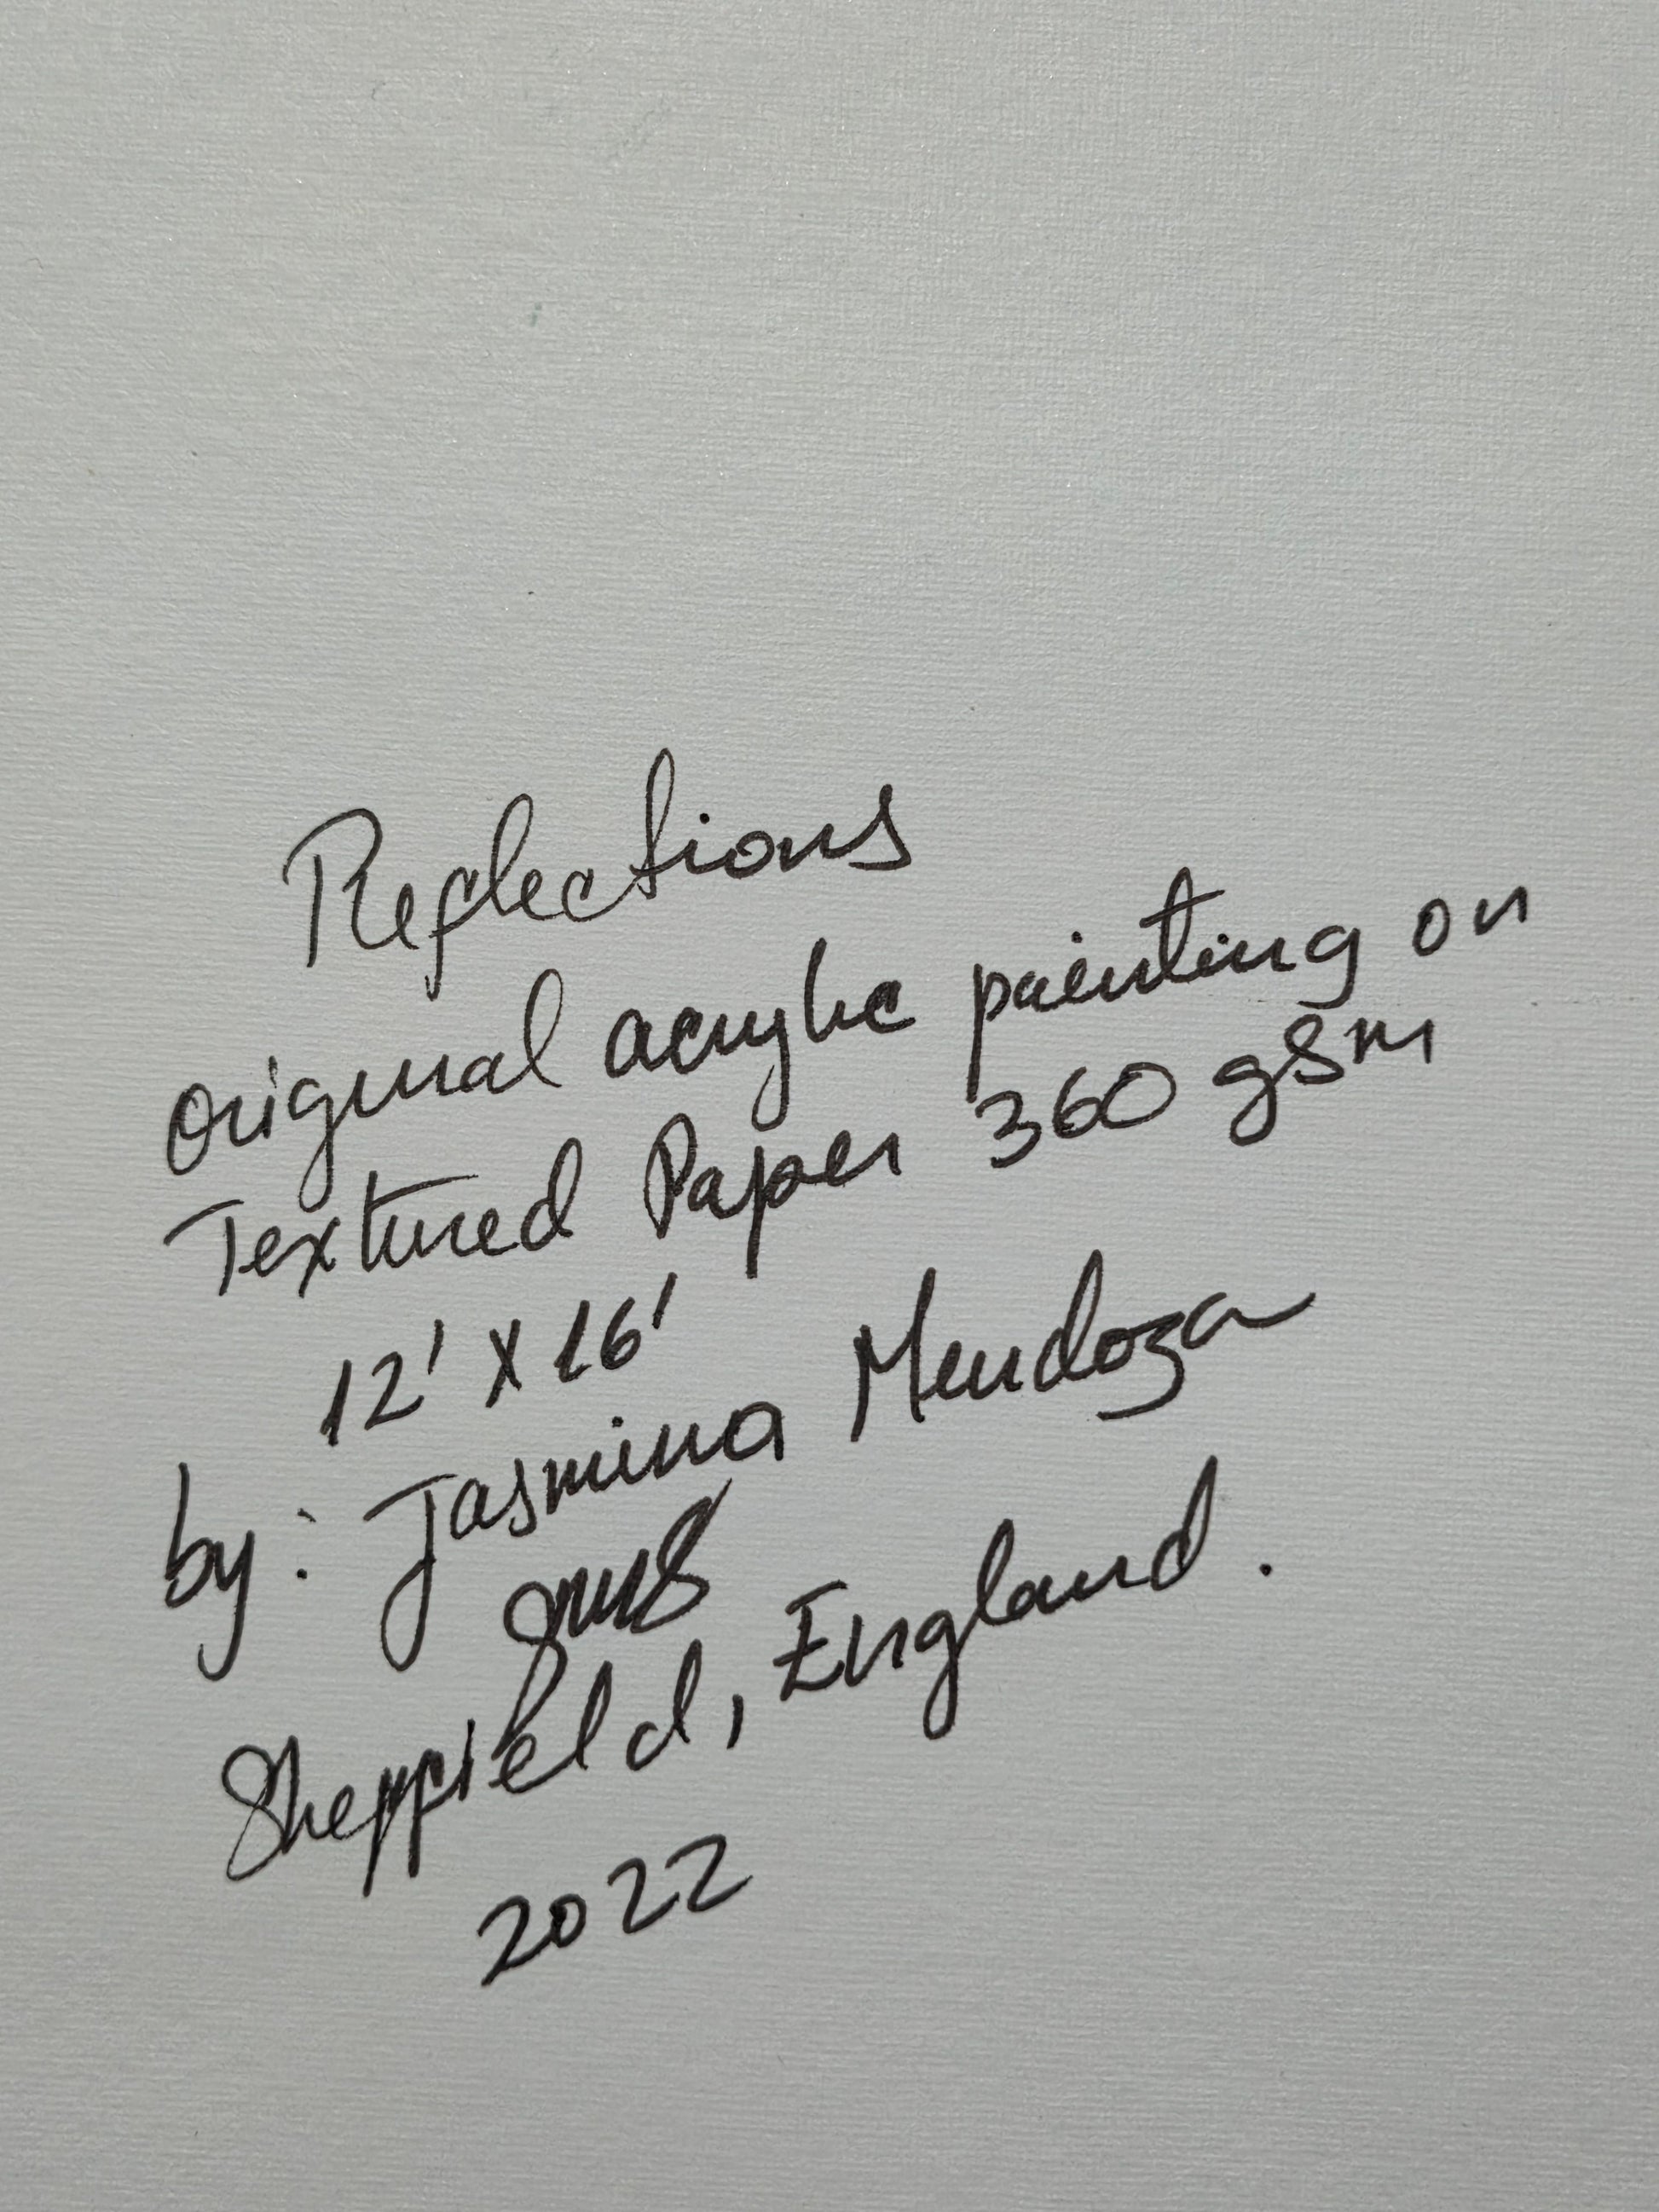 Reflections
original acrylic painting on
Textured Paper 360 gsm
12' x 16'
by: Jasmina Mendoza
Sheffield, England.
2022